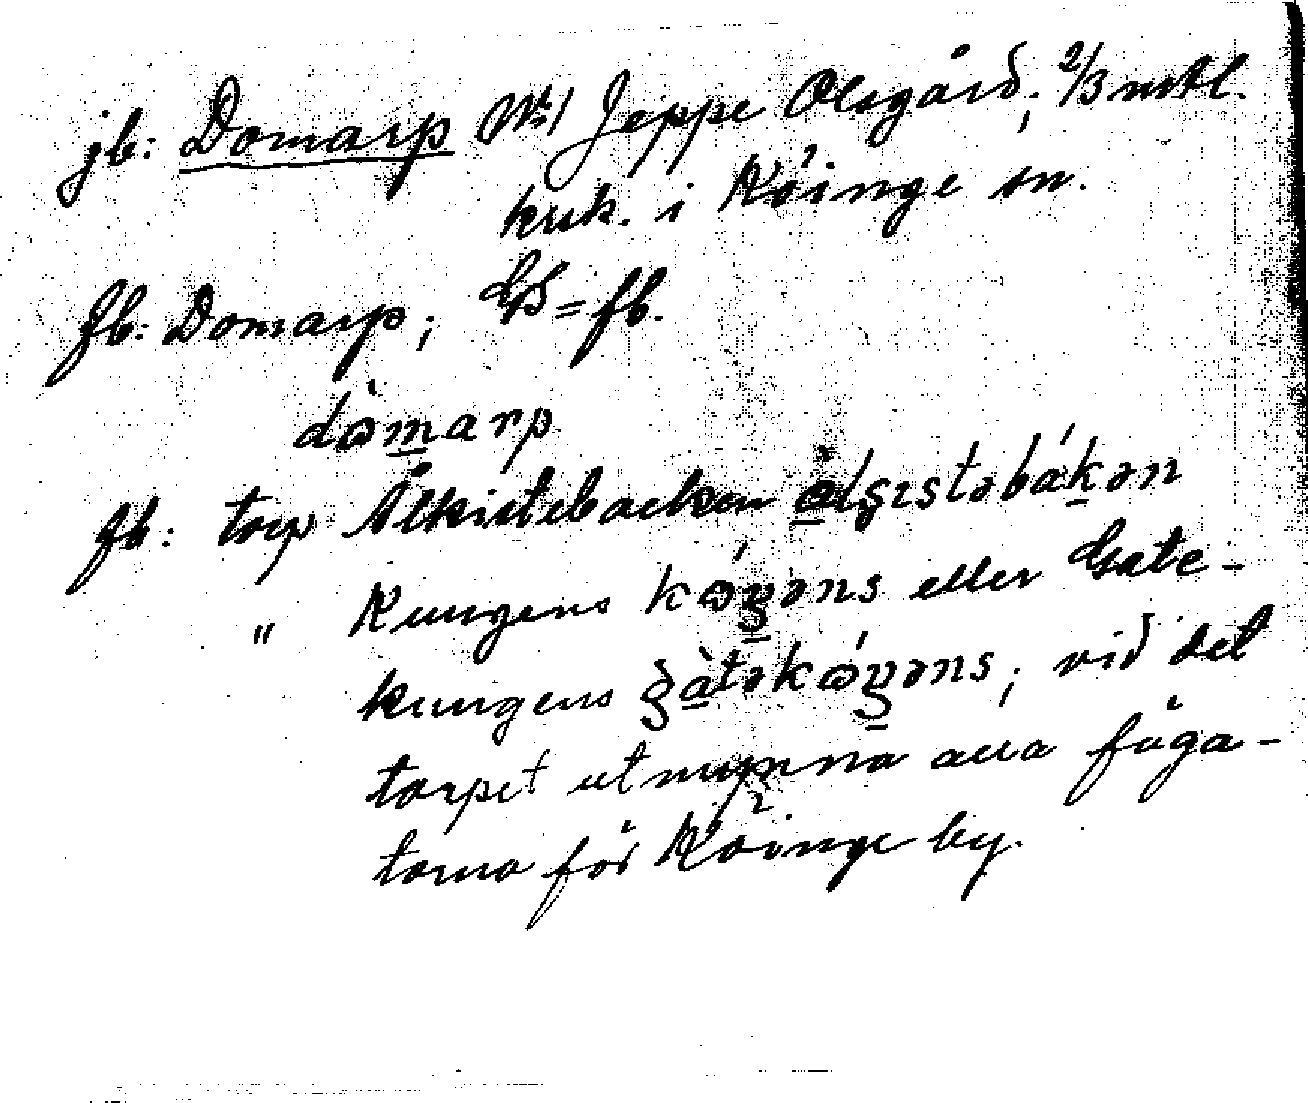 jb: Domarp No 1 Jeppe Olsgård; 2/3 mtl.
krk. i Köinge sn.
fb: Domarp; GS = fb.
dòmarp
fb: torp Ålkistebacken
" Kungens eller Gate-
kungens; vid det
torpet utmynna alla fäga-
torna för Köinge by.